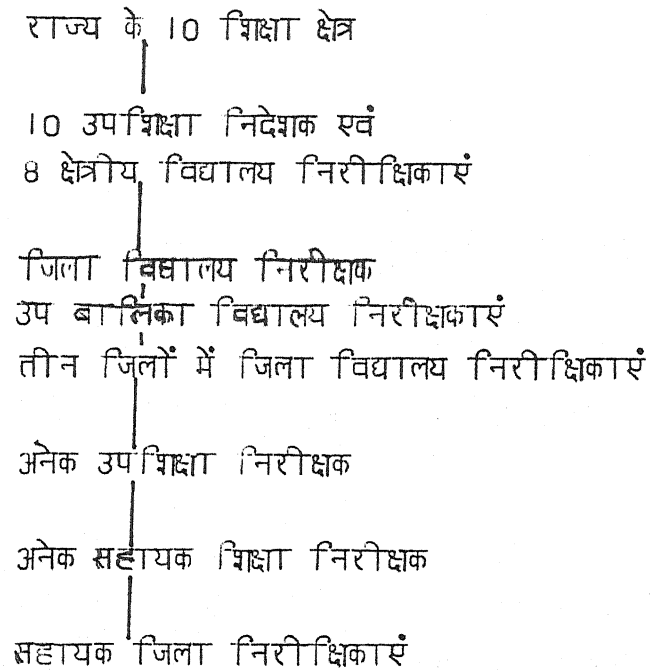 राज्य के 10 शिक्षा क्षेत्र
10 उप शिक्षा निदेशक एवं
8 क्षेत्रीय विद्यालय निरीक्षिकाएं
जिला विद्यालय निरीक्षक
उप बालिका विद्यालय निरीक्षकाएं
तीन जिलों में जिला विद्यालय निरीक्षिकाएं
अनेक उप शिक्षा निरीक्षक
अनेक सहायक शिक्षा निरीक्षक
सहायक जिला निरीक्षिकाएं